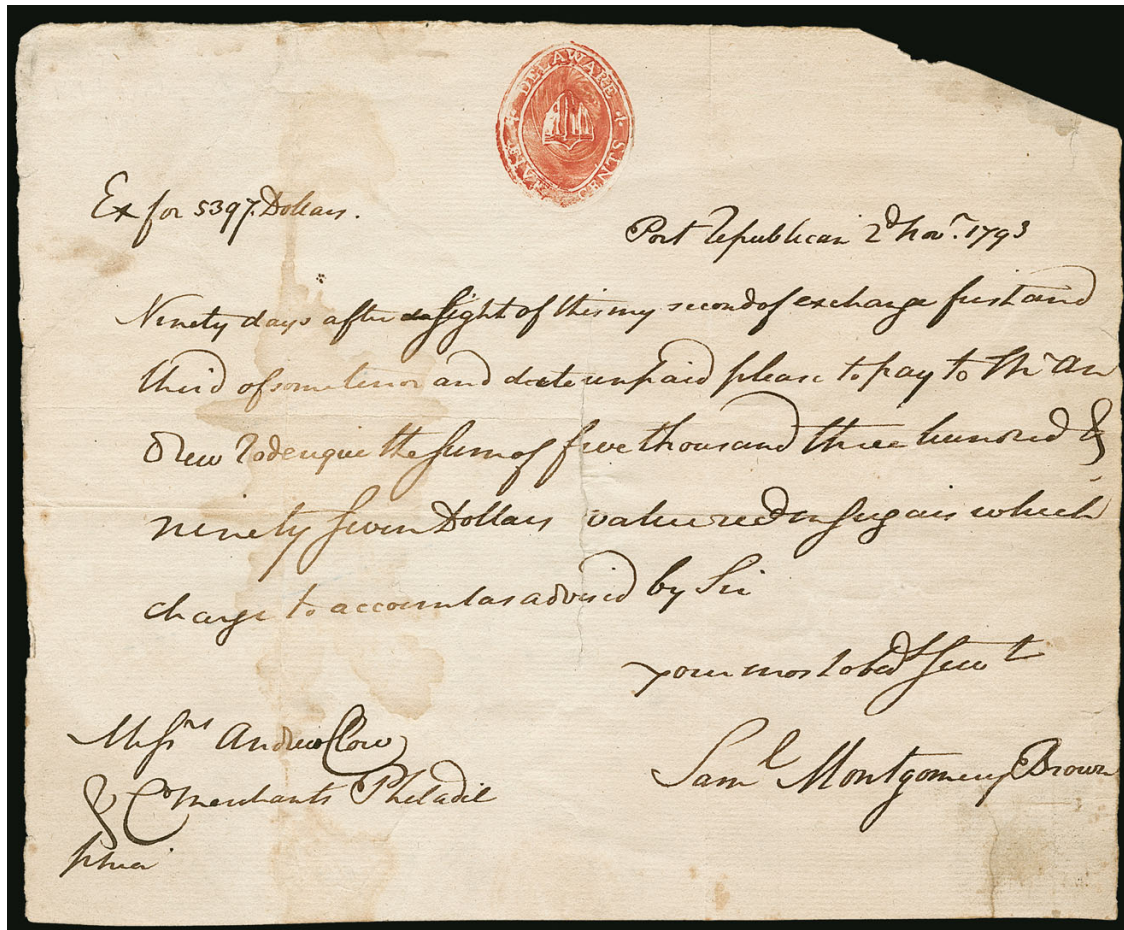 DELAWARE
CENTS
Ex for 5397. Dollars.
Port Republican 2d Novr. 1793
Ninety days after sight of this my second of exchange first and
third of same tenor and date unpaid please to pay to Mr An
drew the sum of five thousand three hundred &
ninety seven Dollars value red in sugars which
charge to account as advised by Sir
your most obedt Servt
Saml Montgomery Brown
Messrs Andrew Clow
& Co Merchants Philadel
phia